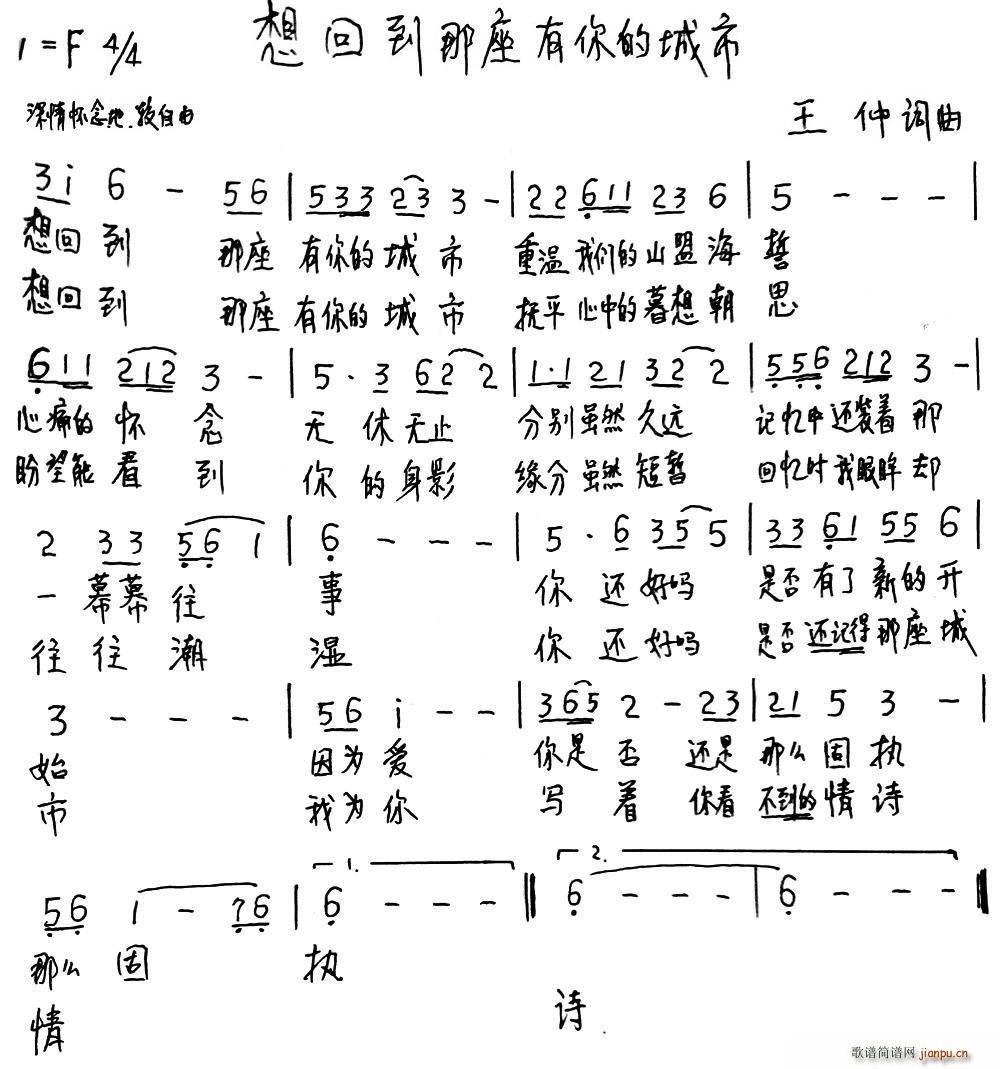 想回到那座有你的城市
1=F 4/4
深情怀念地、较自由
王 仲 词曲
3 i 6 - 5 6 | 5 3 3 2 3 3 - | 2 2 6 1 1 2 3 6 | 5 - - - |
想回到 那座 有你的城市 重温我们的山盟海誓
想回到 那座 有你的城市 抚平心中的暮想朝思
6 1 1 2 1 2 3 - | 5 · 3 6 2 2 | 1 · 1 2 1 3 2 2 | 5 5 6 2 1 2 3 - |
心痛的怀念 无休无止 分别虽然久远 记忆中还装着那
盼望能看到 你的身影 缘分虽然短暂 回忆时我眼眸却
2 3 3 5 6 1 | 6 - - - | 5 · 6 3 5 5 | 3 3 6 1 5 5 6 |
一幕幕往 事 你还好吗 是否有了新的开
往往潮 湿 你还好吗 是否还记得那座城
3 - - - | 5 6 i - - | 3 6 5 2 - 2 3 | 2 1 5 3 - |
始 因为爱 你是否 还是那么固执
市 我为你 写着 你看不到的情诗
1. 2.
5 6 1 - 7 6 | 6 - - - | 6 - - - | 6 - - - |
那么固 执
情 诗
歌谱简谱网 jianpu.cn